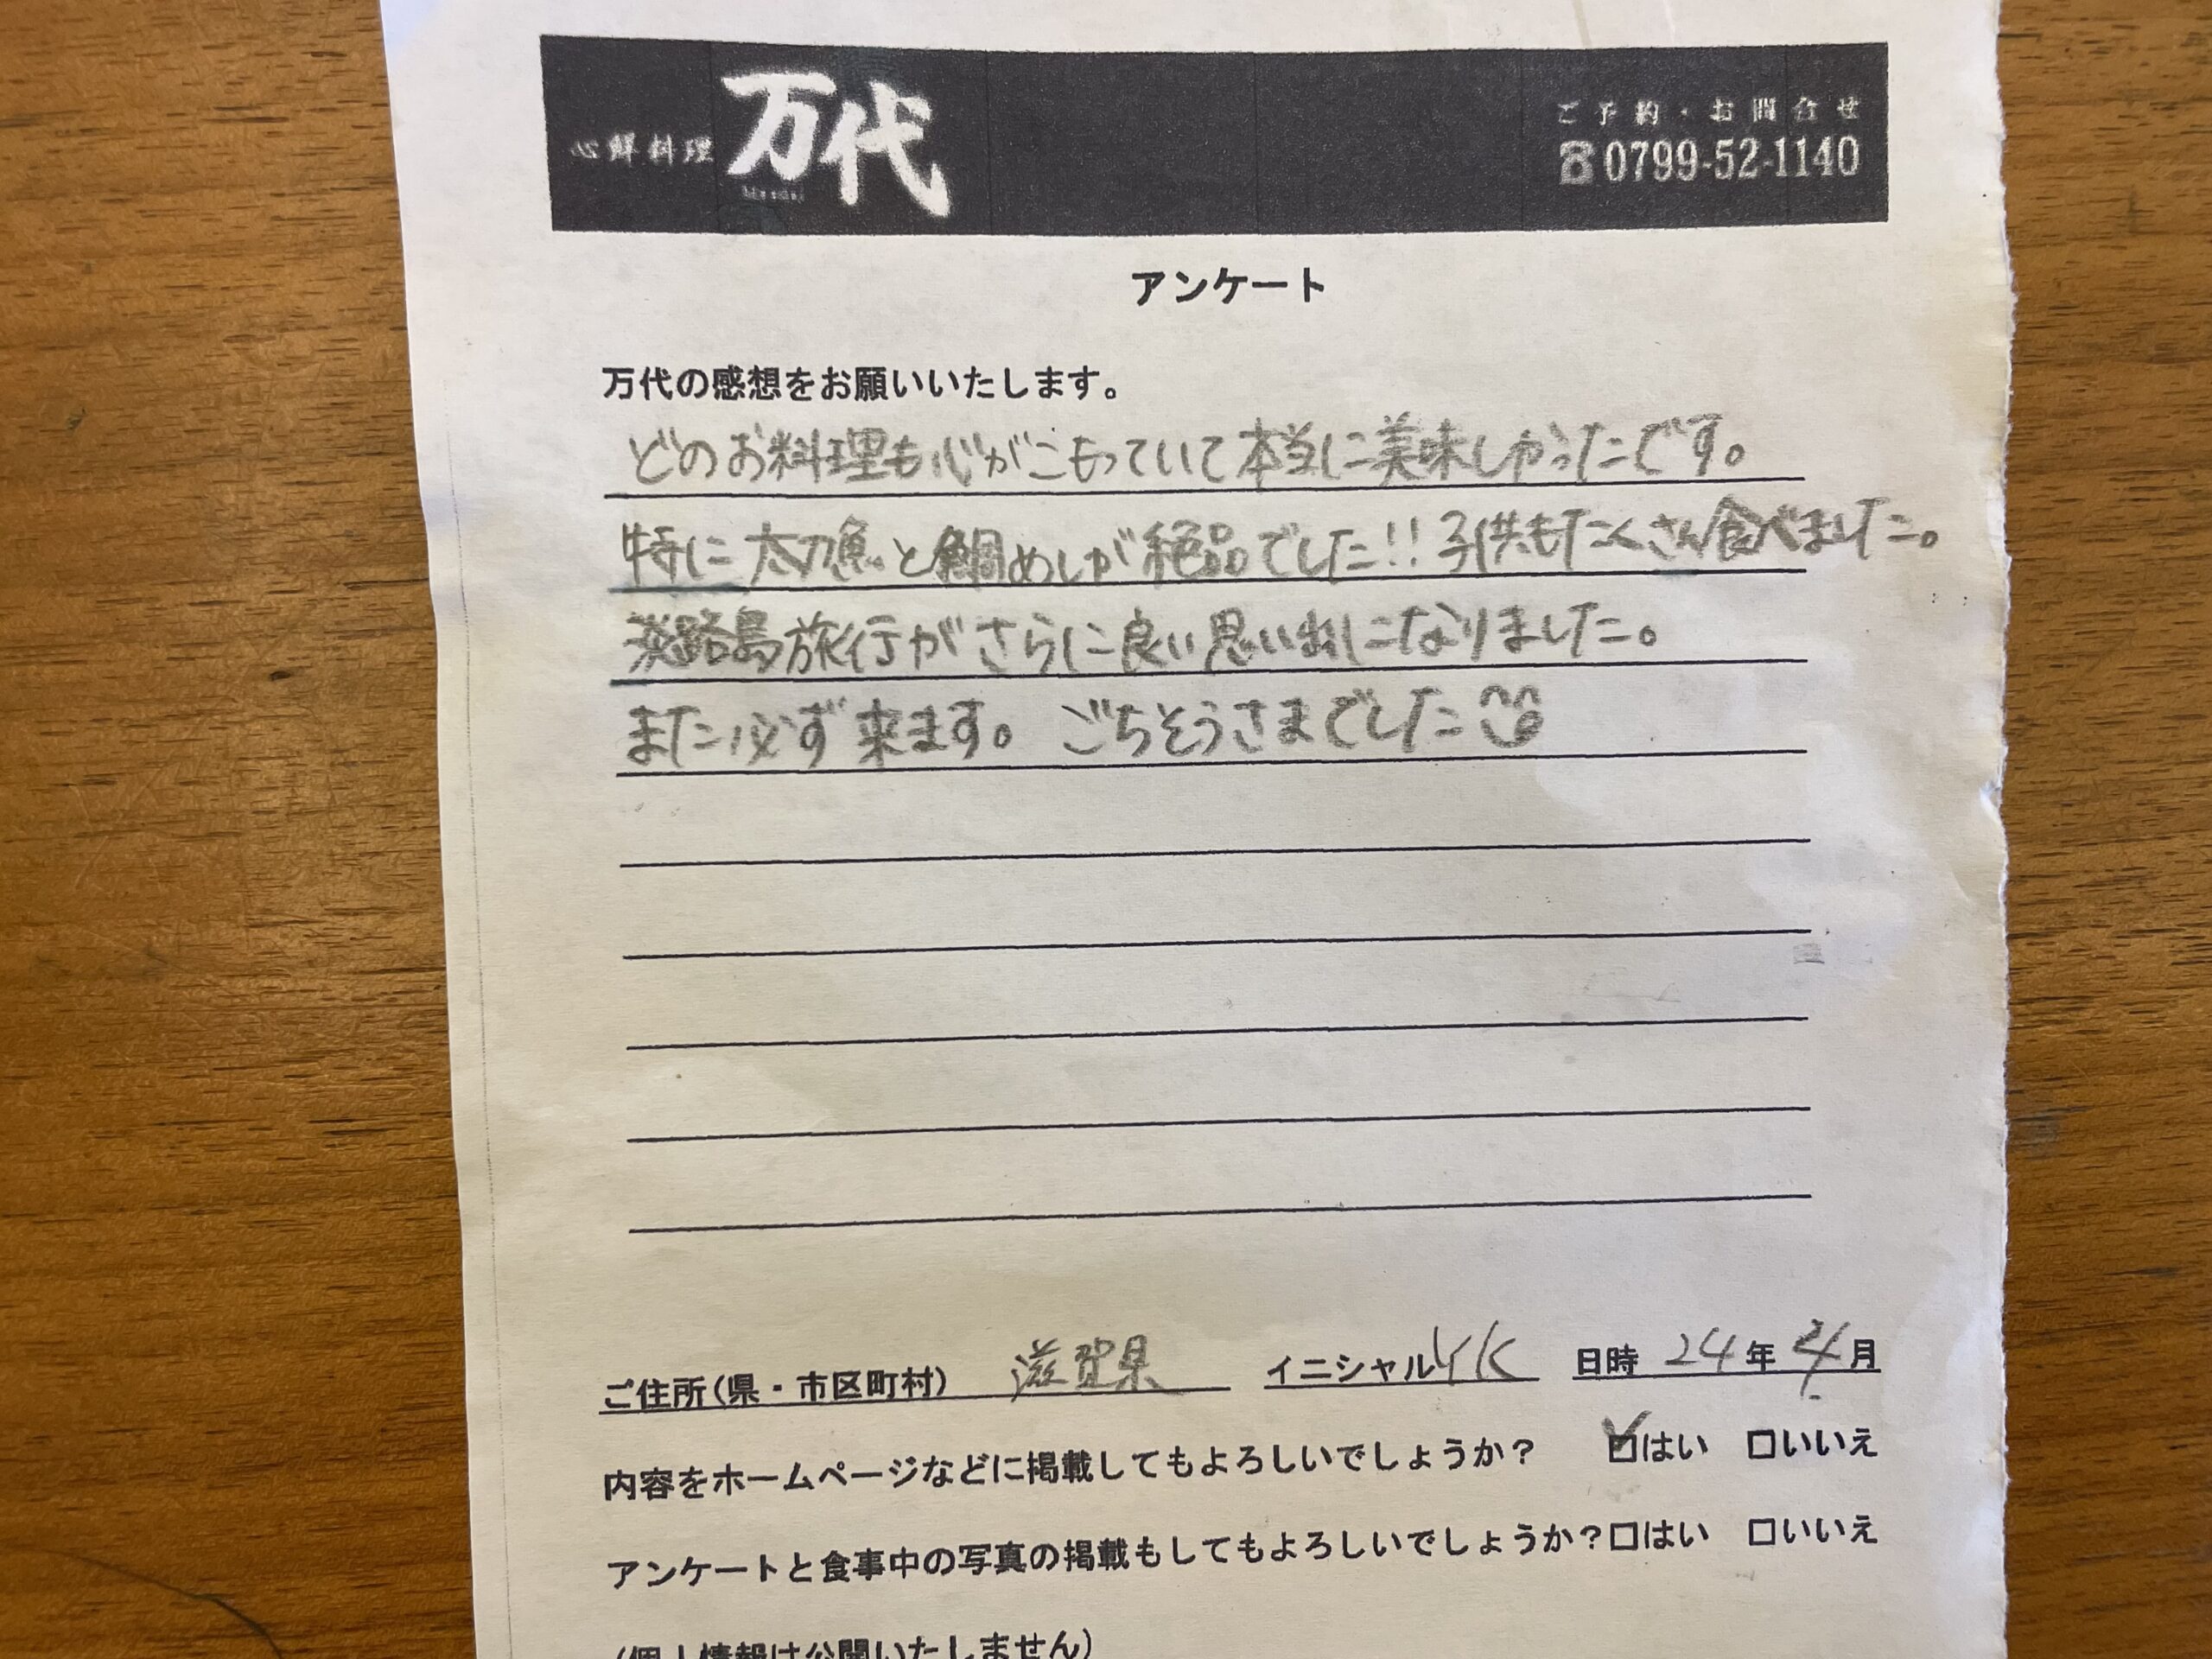 心鮮料理 万代
ご予約・お問合せ
☎0799-52-1140
アンケート
万代の感想をお願いいたします。
どのお料理も心がこもっていて本当に美味しかったです。
特に太刀魚と鯛めしが絶品でした!!子供もたくさん食べました。
淡路島旅行がさらに良い思い出になりました。
また必ず来ます。 ごちそうさまでした
ご住所(県・市区町村) 滋賀県 イニシャル YK 日時 24年 4月
内容をホームページなどに掲載してもよろしいでしょうか? ☑はい □いいえ
アンケートと食事中の写真の掲載もしてもよろしいでしょうか?□はい □いいえ
(個人情報は公開いたしません)